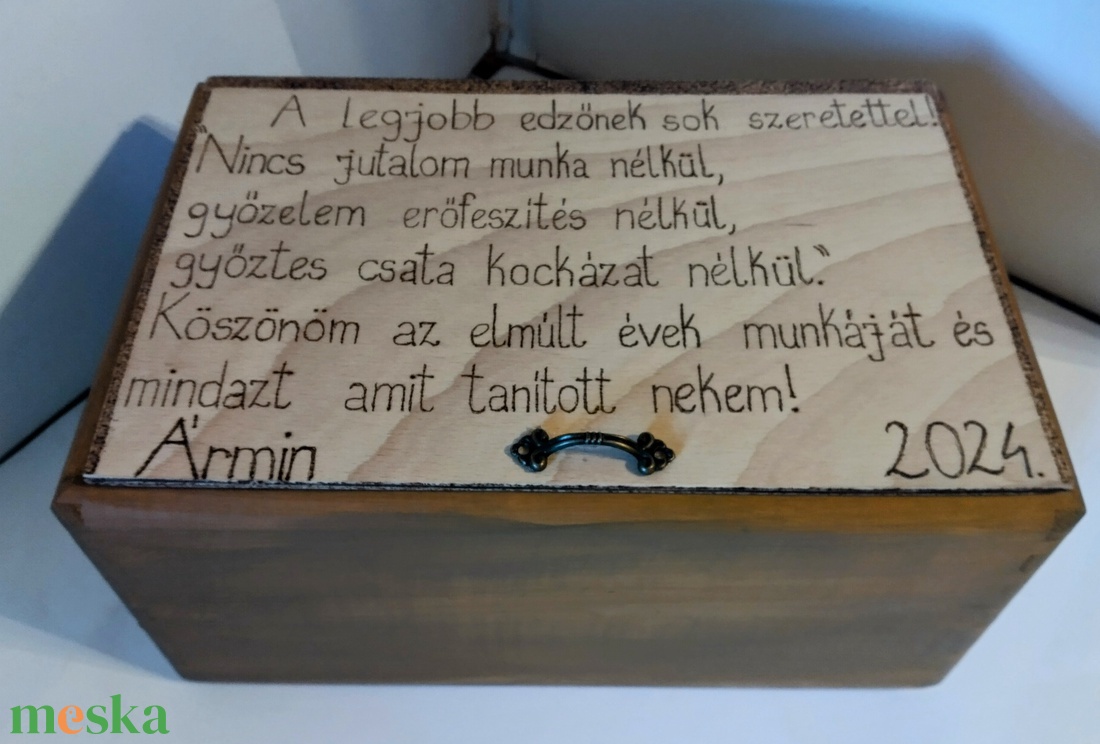 A legjobb edzőnek sok szeretettel!
"Nincs jutalom munka nélkül,
győzelem erőfeszítés nélkül,
győztes csata kockázat nélkül."
Köszönöm az elmúlt évek munkáját és
mindazt amit tanított nekem!
Ármin 2024.
meska